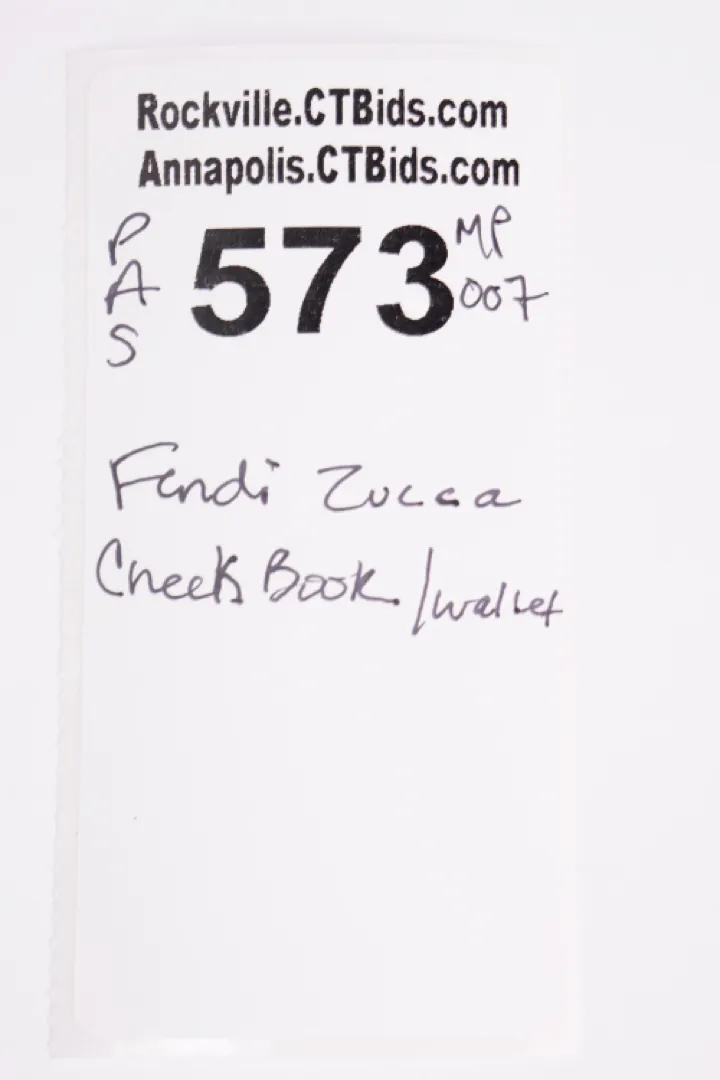 Rockville.CTBids.com
Annapolis.CTBids.com
PAS 573 MP
007
Fendi Zucca
Check Book/wallet